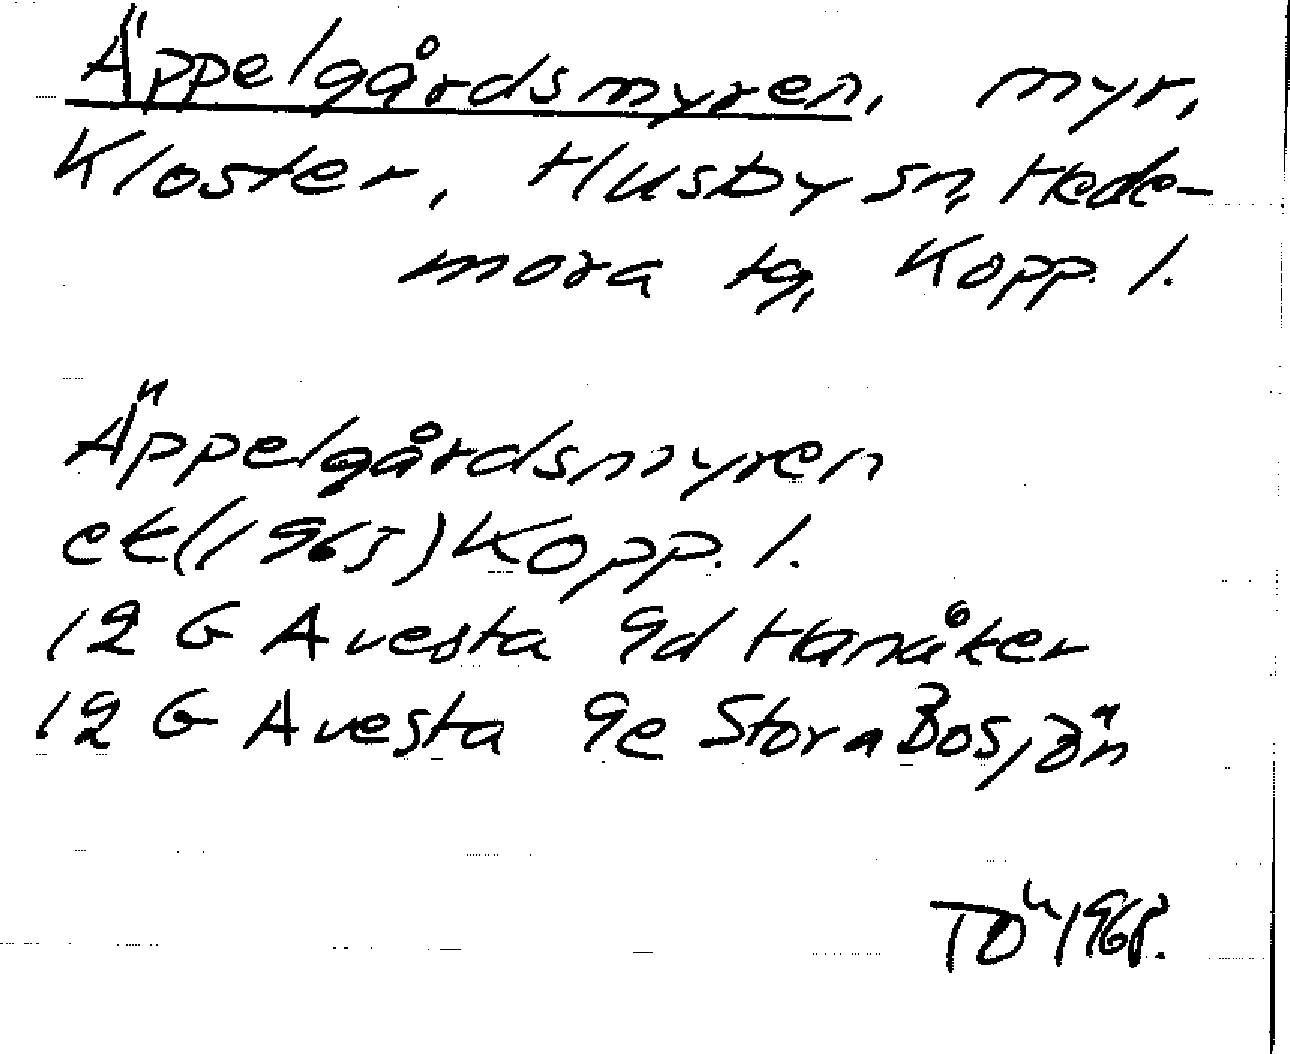 Äppelgårdsmyren, myr,
Kloster, Husby sn, Hede-
mora tg, Kopp. l.
Äppelgårdsmyren
ek(1965) Kopp. l.
12 G Avesta 9d Hanåker
12 G Avesta 9e Stora Bosjön
TÖ 1968.